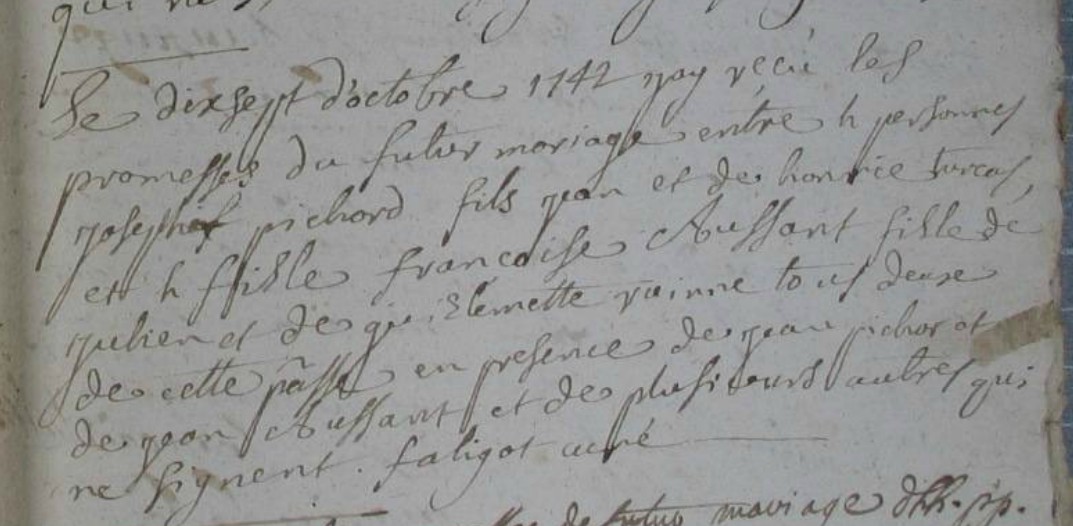 Le dix sept d'octobre 1742 j'ay reçü les
promesses du futur mariage entre h personnes
joseph pichord fils jean et de honorée turcas,
et h fille francoise Aussant fille de
julien et de guillemette ruinne tous deux
de cette pâsse en presence de jean pichor et
de jean Aussant et de plusieurs autres qui
ne signent. faligot curé
de futur mariage